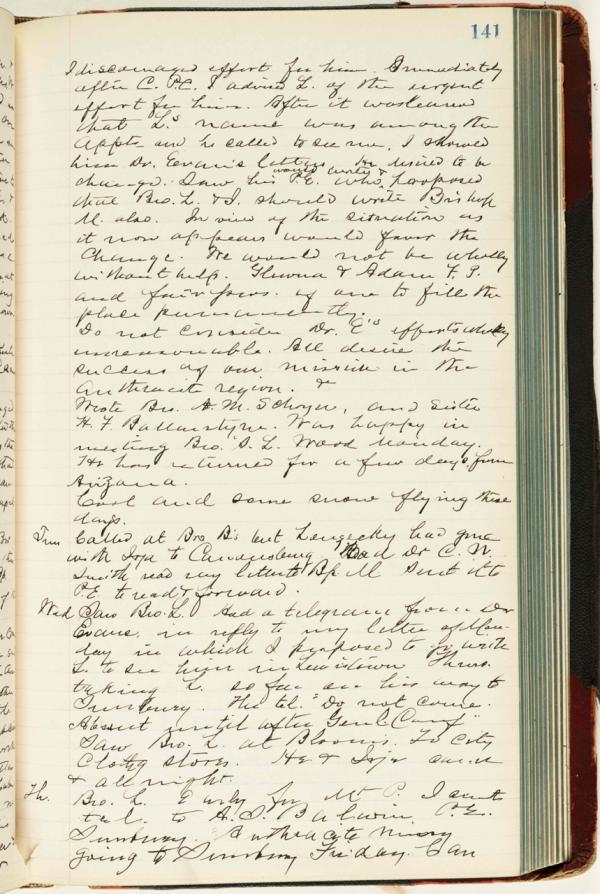 141
I discouraged effort for him. Immediately
after C. P.E. I advised L. of the urgent
effort for him. After it was learned
that L's name was among the
appts and he called to see me, I showed
him Dr. Evans's letters. He desired to be
change. Saw his P.E. who would write & proposed
that Bro. L. & I. should write Bishop
M. also. In view of the situation as
it now appears would favor the
Change. We would not be wholly
without help. & Adam F. P.
and fair of one to fill the
place permanently.
Do not consider Dr. E's efforts wholly
unreasonable. All desire the
success of our mission in the
anthracite region. &
Wrote Bro. A. M. and Sister
H. F. Ballantyne. Was happy in
meeting Bro. S. L. Wood Monday.
He has returned for a few days from
Arizona.
Cool and some snow flying these
days.
Called at Bro B's but had gone
with to Canonsburg. Had Dr C. W.
Smith read my letter to Bp M Sent it to
P.E. to read & forward.
Wed Saw Bro. L. Had a telegram from Dr
Evans, in reply to my letter of Mon-
day in which I proposed to write
L. to see him in Lewistown Thurs.
taking L. so far on his way to
Sunbury. His tel. "Do not come.
Absent until after Genl Conf"
Saw Bro. L. at Bloom's. To city
Clothg stores. He & came
& all night.
Th. Bro. L. Early for Mt P. I sent
tel. to A. S. Baldwin P.E.
Sunbury. Anthracite
going to Sunbury Friday. Can